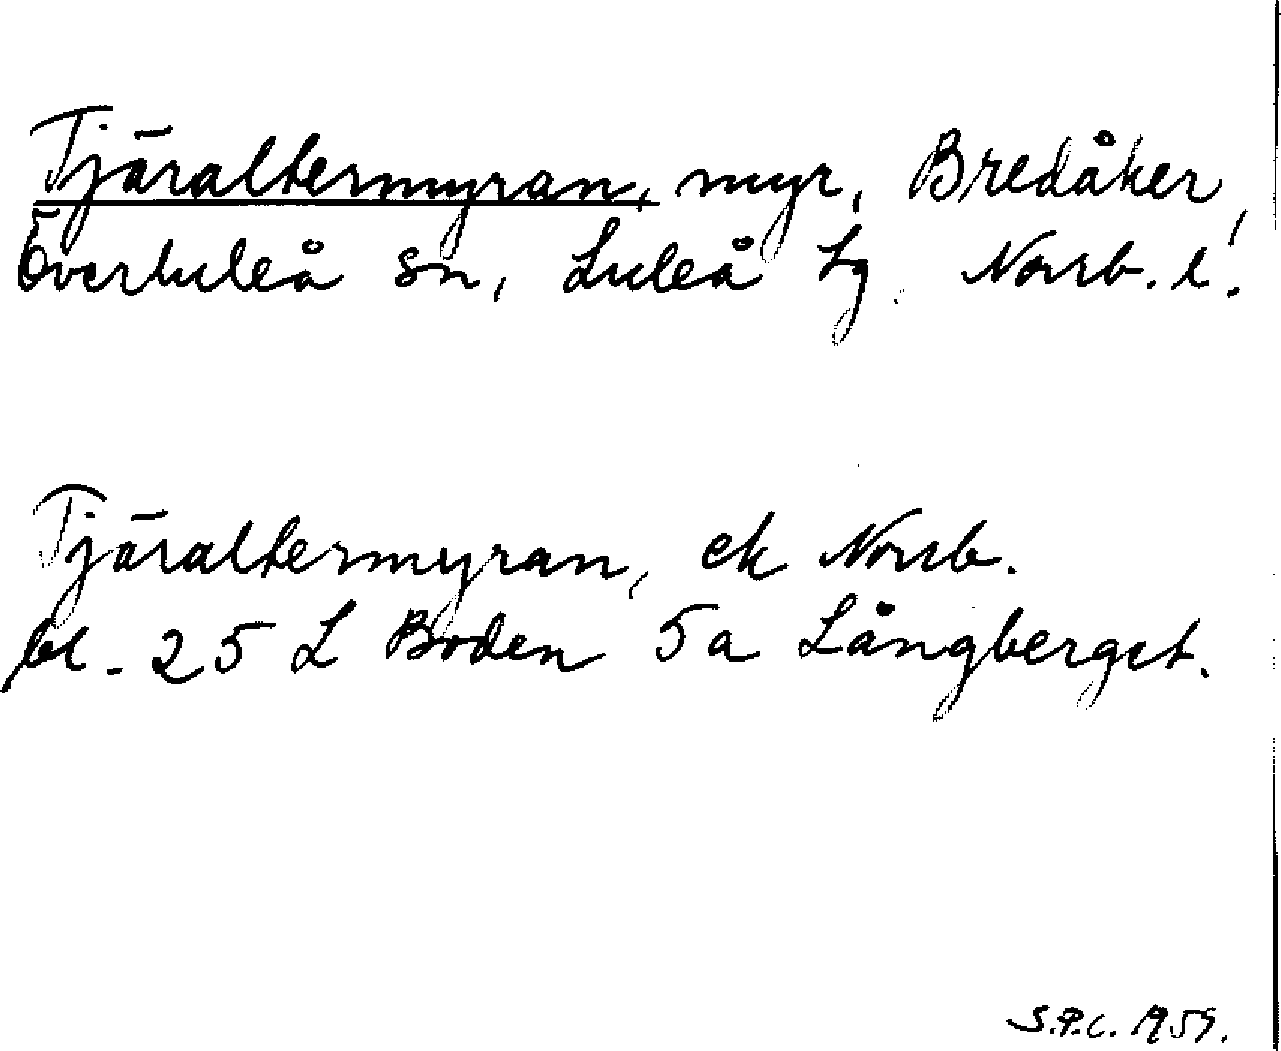 Tjäraltermyran, myr, Bredåker,
Överluleå sn, Luleå tg Norrb. l.
Tjäraltermyran, ek Norrb.
bl. 25 L Boden 5a Långberget.
S.P.C. 1959.